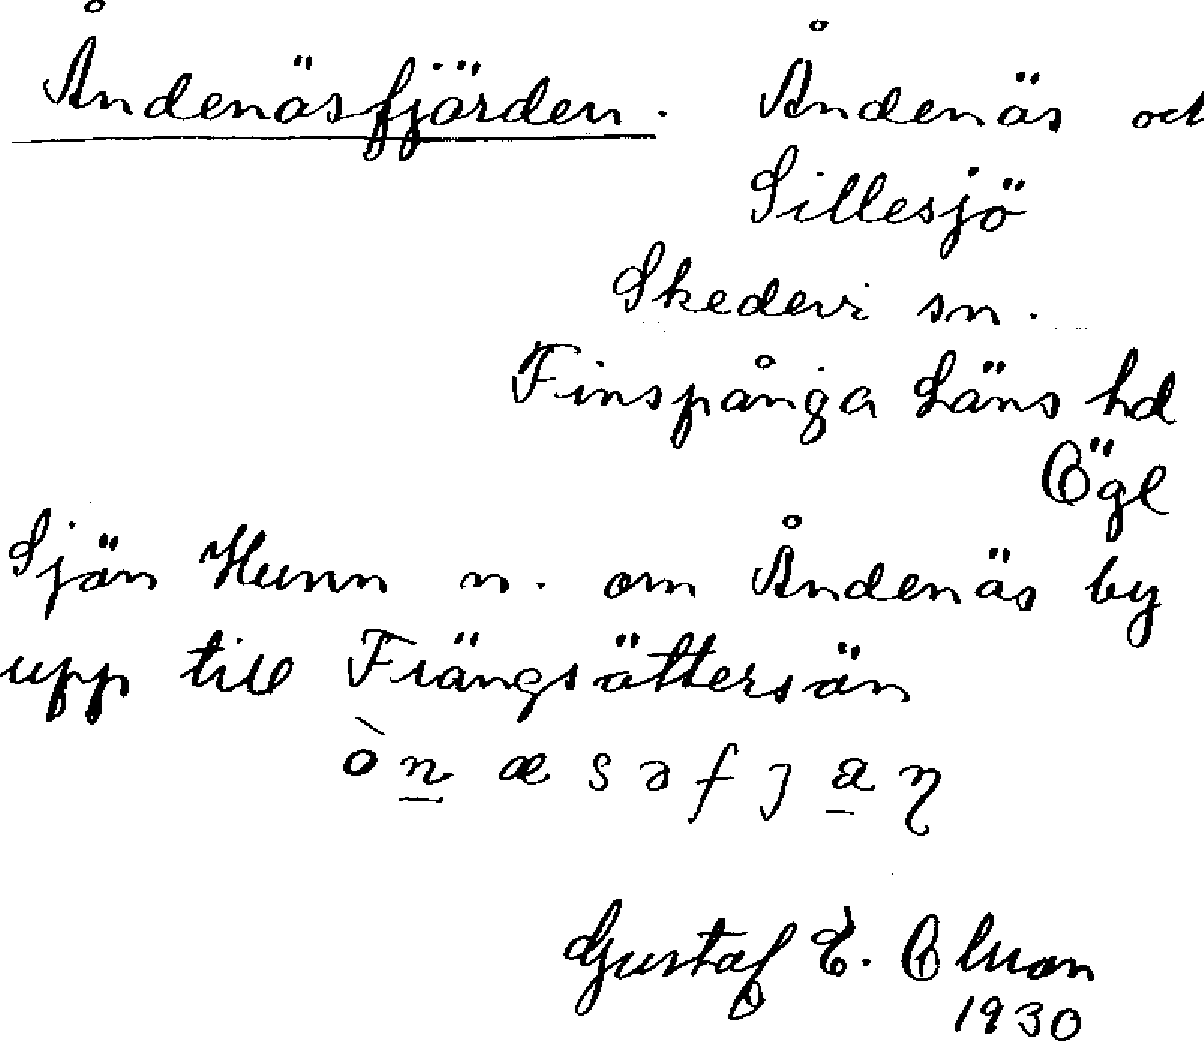 Åndenäsfjärden. Åndenäs och
Sillesjö
Skedevi sn.
Finspånga Läns hd
Ögl
Sjön Hunn n. om Åndenäs by
upp till Frängsättersån
ò n æ s ə f j a η
Gustaf E.
1930